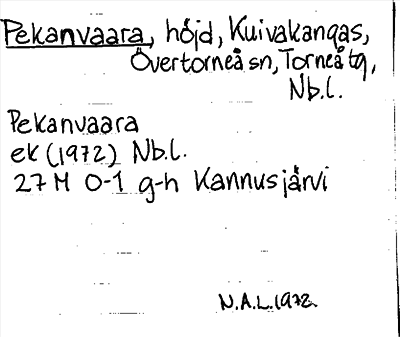 Pekanvaara, höjd, Kuivakangas,
Övertorneå sn, Torneå tg,
Nb.l.
Pekanvaara
ek (1972) Nb.l.
27 M 0-1 g-h Kannusjärvi
N.A.L. 1972.